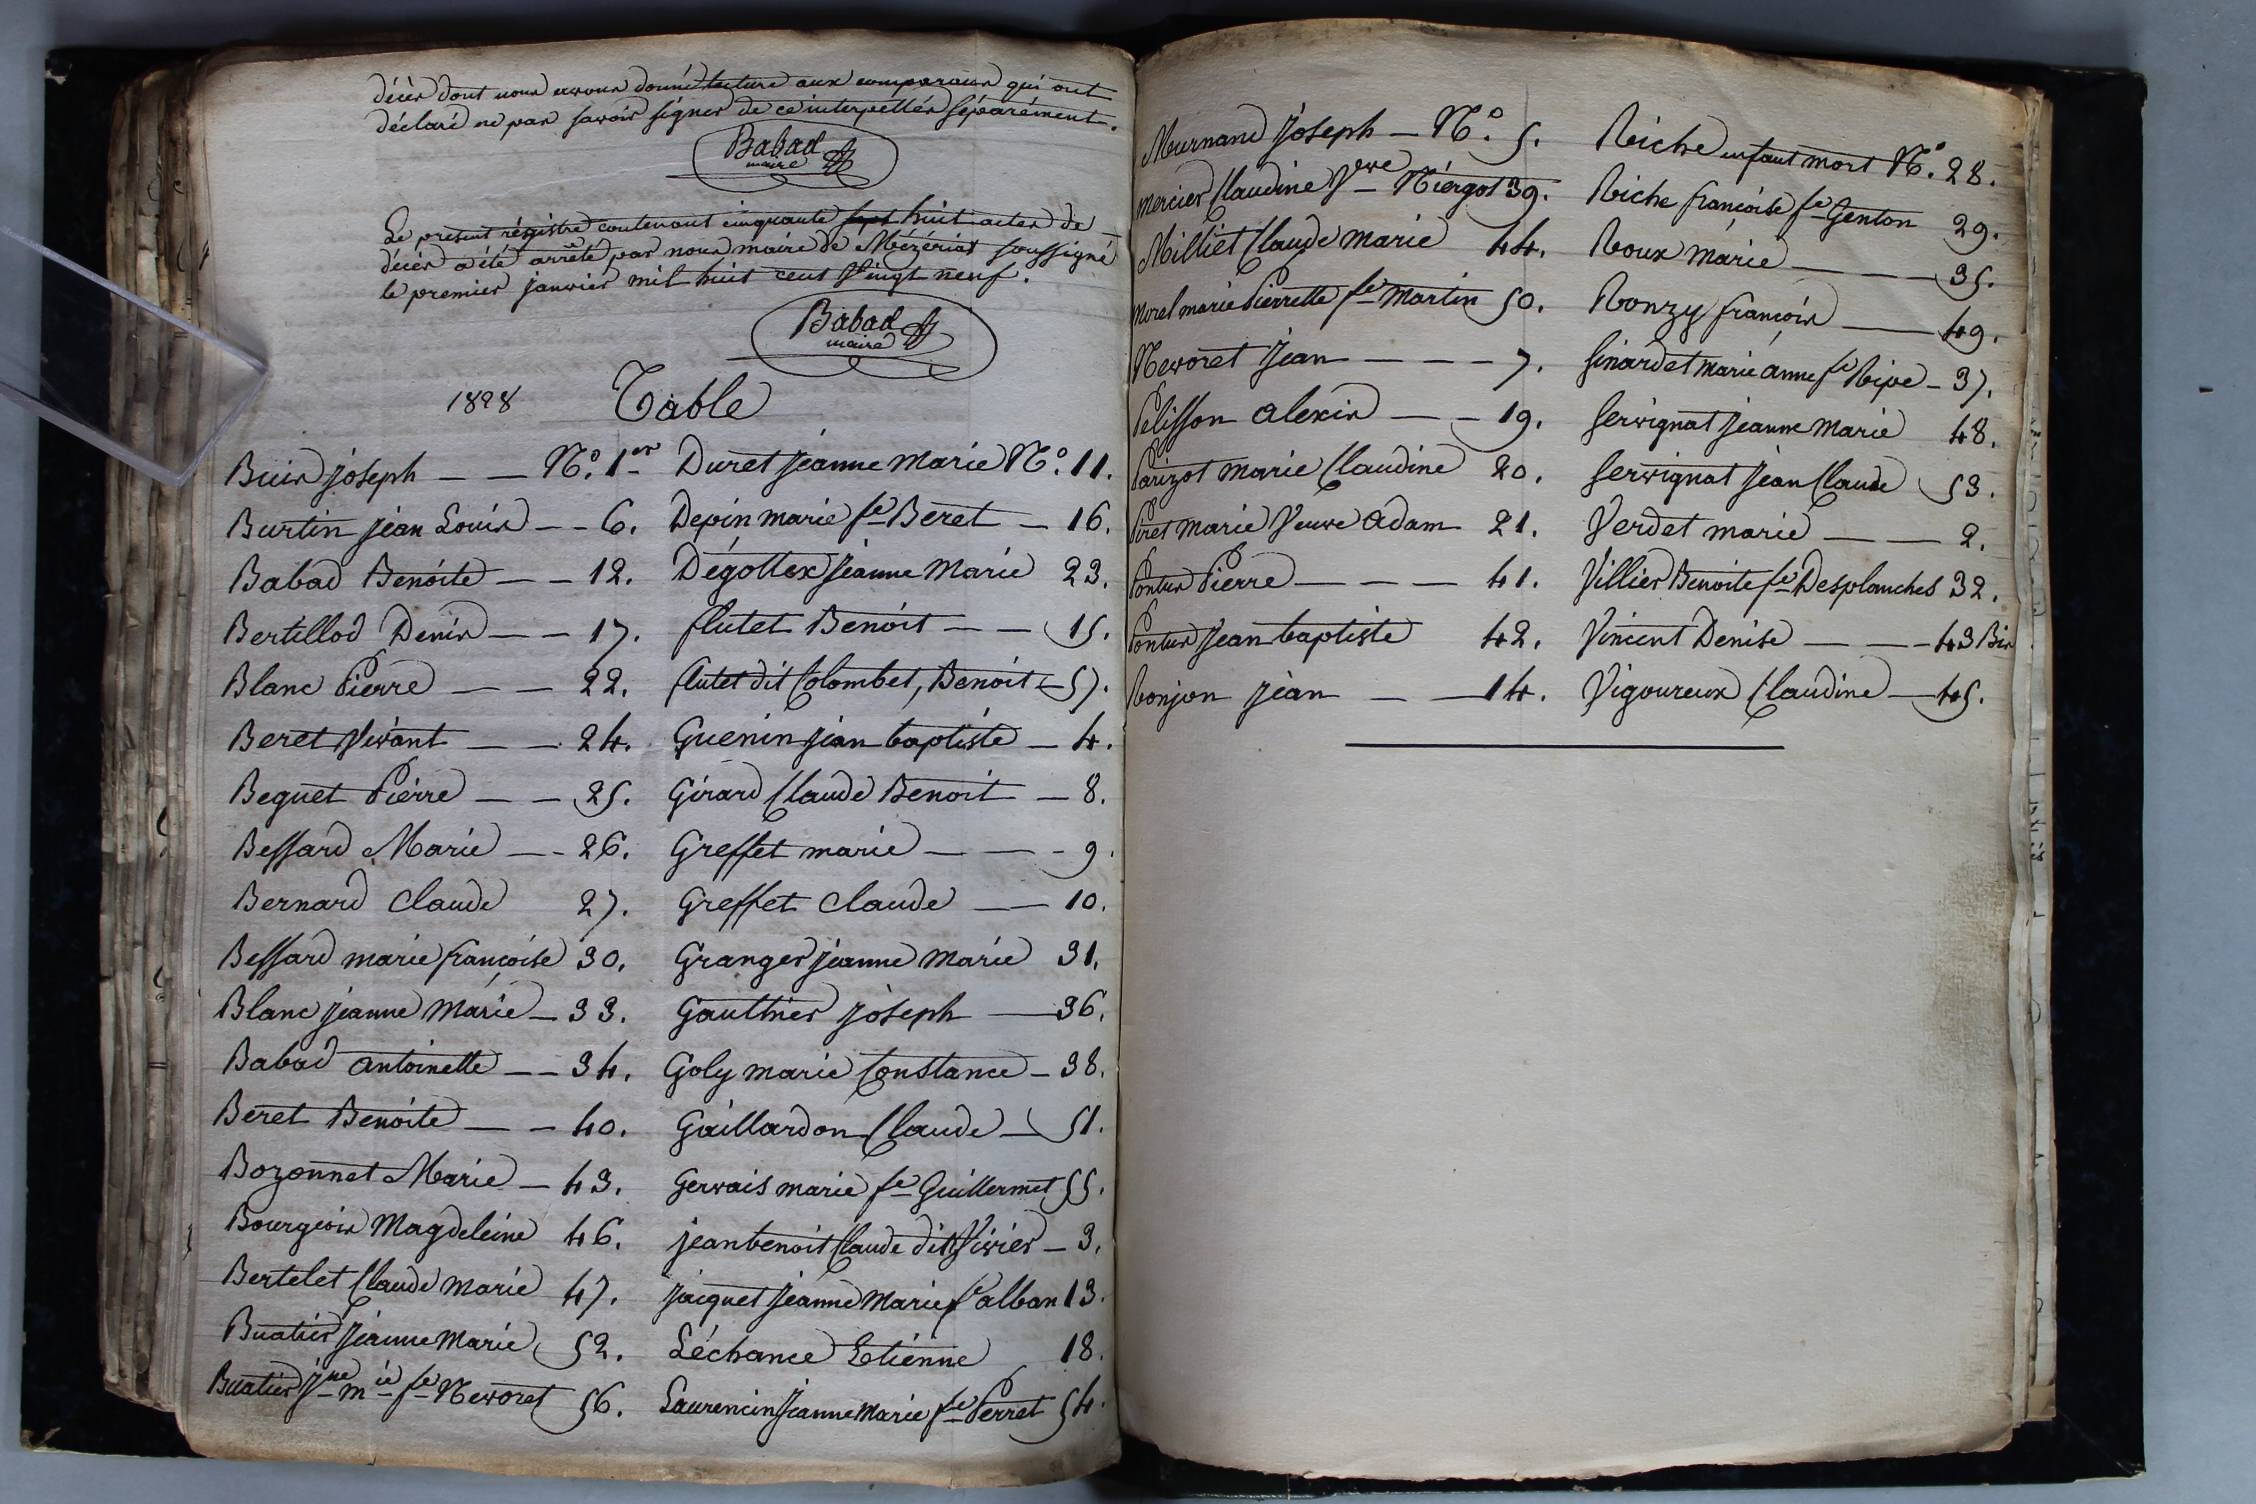 décès dont nous avons donné lecture aux comparans qui ont
déclaré ne pas savoir signer de ce interpellés séparément.
Babad
maire
Le présent régistre contenant cinquante sept huit actes de
décès a été arrêté par nous maire de Mézériat soussigné
le premier janvier mil huit cent vingt neuf.
Babad
maire
1828 Table
Buis joseph — — N.º 1er
Burtin jean Louis — — 6.
Babad Benoite — — 12.
Bertillod Denis — — 17.
Blanc Pierre — — 22.
Beret Vivant — — 24.
Beguet Pierre — — 25.
Bessard Marie — - 26.
Bernard Claude 27.
Bessard marie françoise 30.
Blanc jeanne Marie — 33.
Babad antoinette — — 34.
Beret Benoite — — 40.
Bozonnet Marie — 43.
Bourgeois Magdeleine 46.
Bertelet Claude marie 47.
Buatier jeanne Marie 52.
Buatier jne mie fe Nevoret 56.
Duret jeanne Marie N.º 11.
Depin marie fe Beret — 16.
Dégottex jeanne Marie 23.
flutet Benoit — — 15.
flutet dit Colombet, Benoit — 57.
Guenin jean baptiste — 4.
Girard Claude Benoit — 8.
Greffet marie — — - 9.
Greffet Claude — — 10.
Granger jeanne Marie 31.
Gauthier joseph — 36.
Goly marie Constance — 38.
Gaillardon Claude — 51.
Gervais marie fe Guillermet 55.
jean benoit Claude dit Vivier — 3.
jacquet jeanne Marie fe alban 13.
Léchance Etienne 18.
Laurencin jeanne Marie fe Perret 54.
Murnand joseph — N.º 5.
Mercier Claudine Veve Niergot 39.
Milliet Claude Marie 44.
Morel marie Pierrette fe Martin 50.
Nevoret jean — — — 7.
Pelisson alexis — — 19.
Parizot marie Claudine 20.
Piret marie Veuve Adam 21.
Pontus Pierre — — — 41.
Pontus jean baptiste 42.
Ronjon jean — — 14.
Riche enfant mort N.º 28.
Riche françoise fe Genton 29.
Roux marie — — — 35.
Ronzy françois — — 49.
Sinardet marie anne fe Ripe — 37.
Servignat jeanne Marie 48.
Servignat jean Claude 53.
Verdet marie — — 2.
Villier Benoite fe Desplanches 32.
Vincent Denise — — — 43 Bis
Vigoureux Claudine — 45.